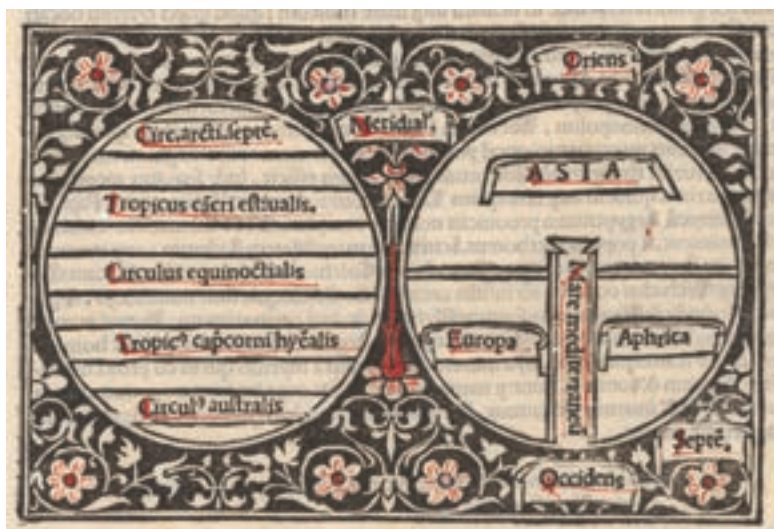 Circ. arcti. septẽ.
Tropicus cãcri estiualis.
Circulus equinoctialis
Tropicꝰ cap̃corni hyẽalis
Circulꝰ australis
Meridiaẽ.
Oriens
ASIA
Mare mediterraneũ
Europa
Aphrica
Septẽ.
Occidens